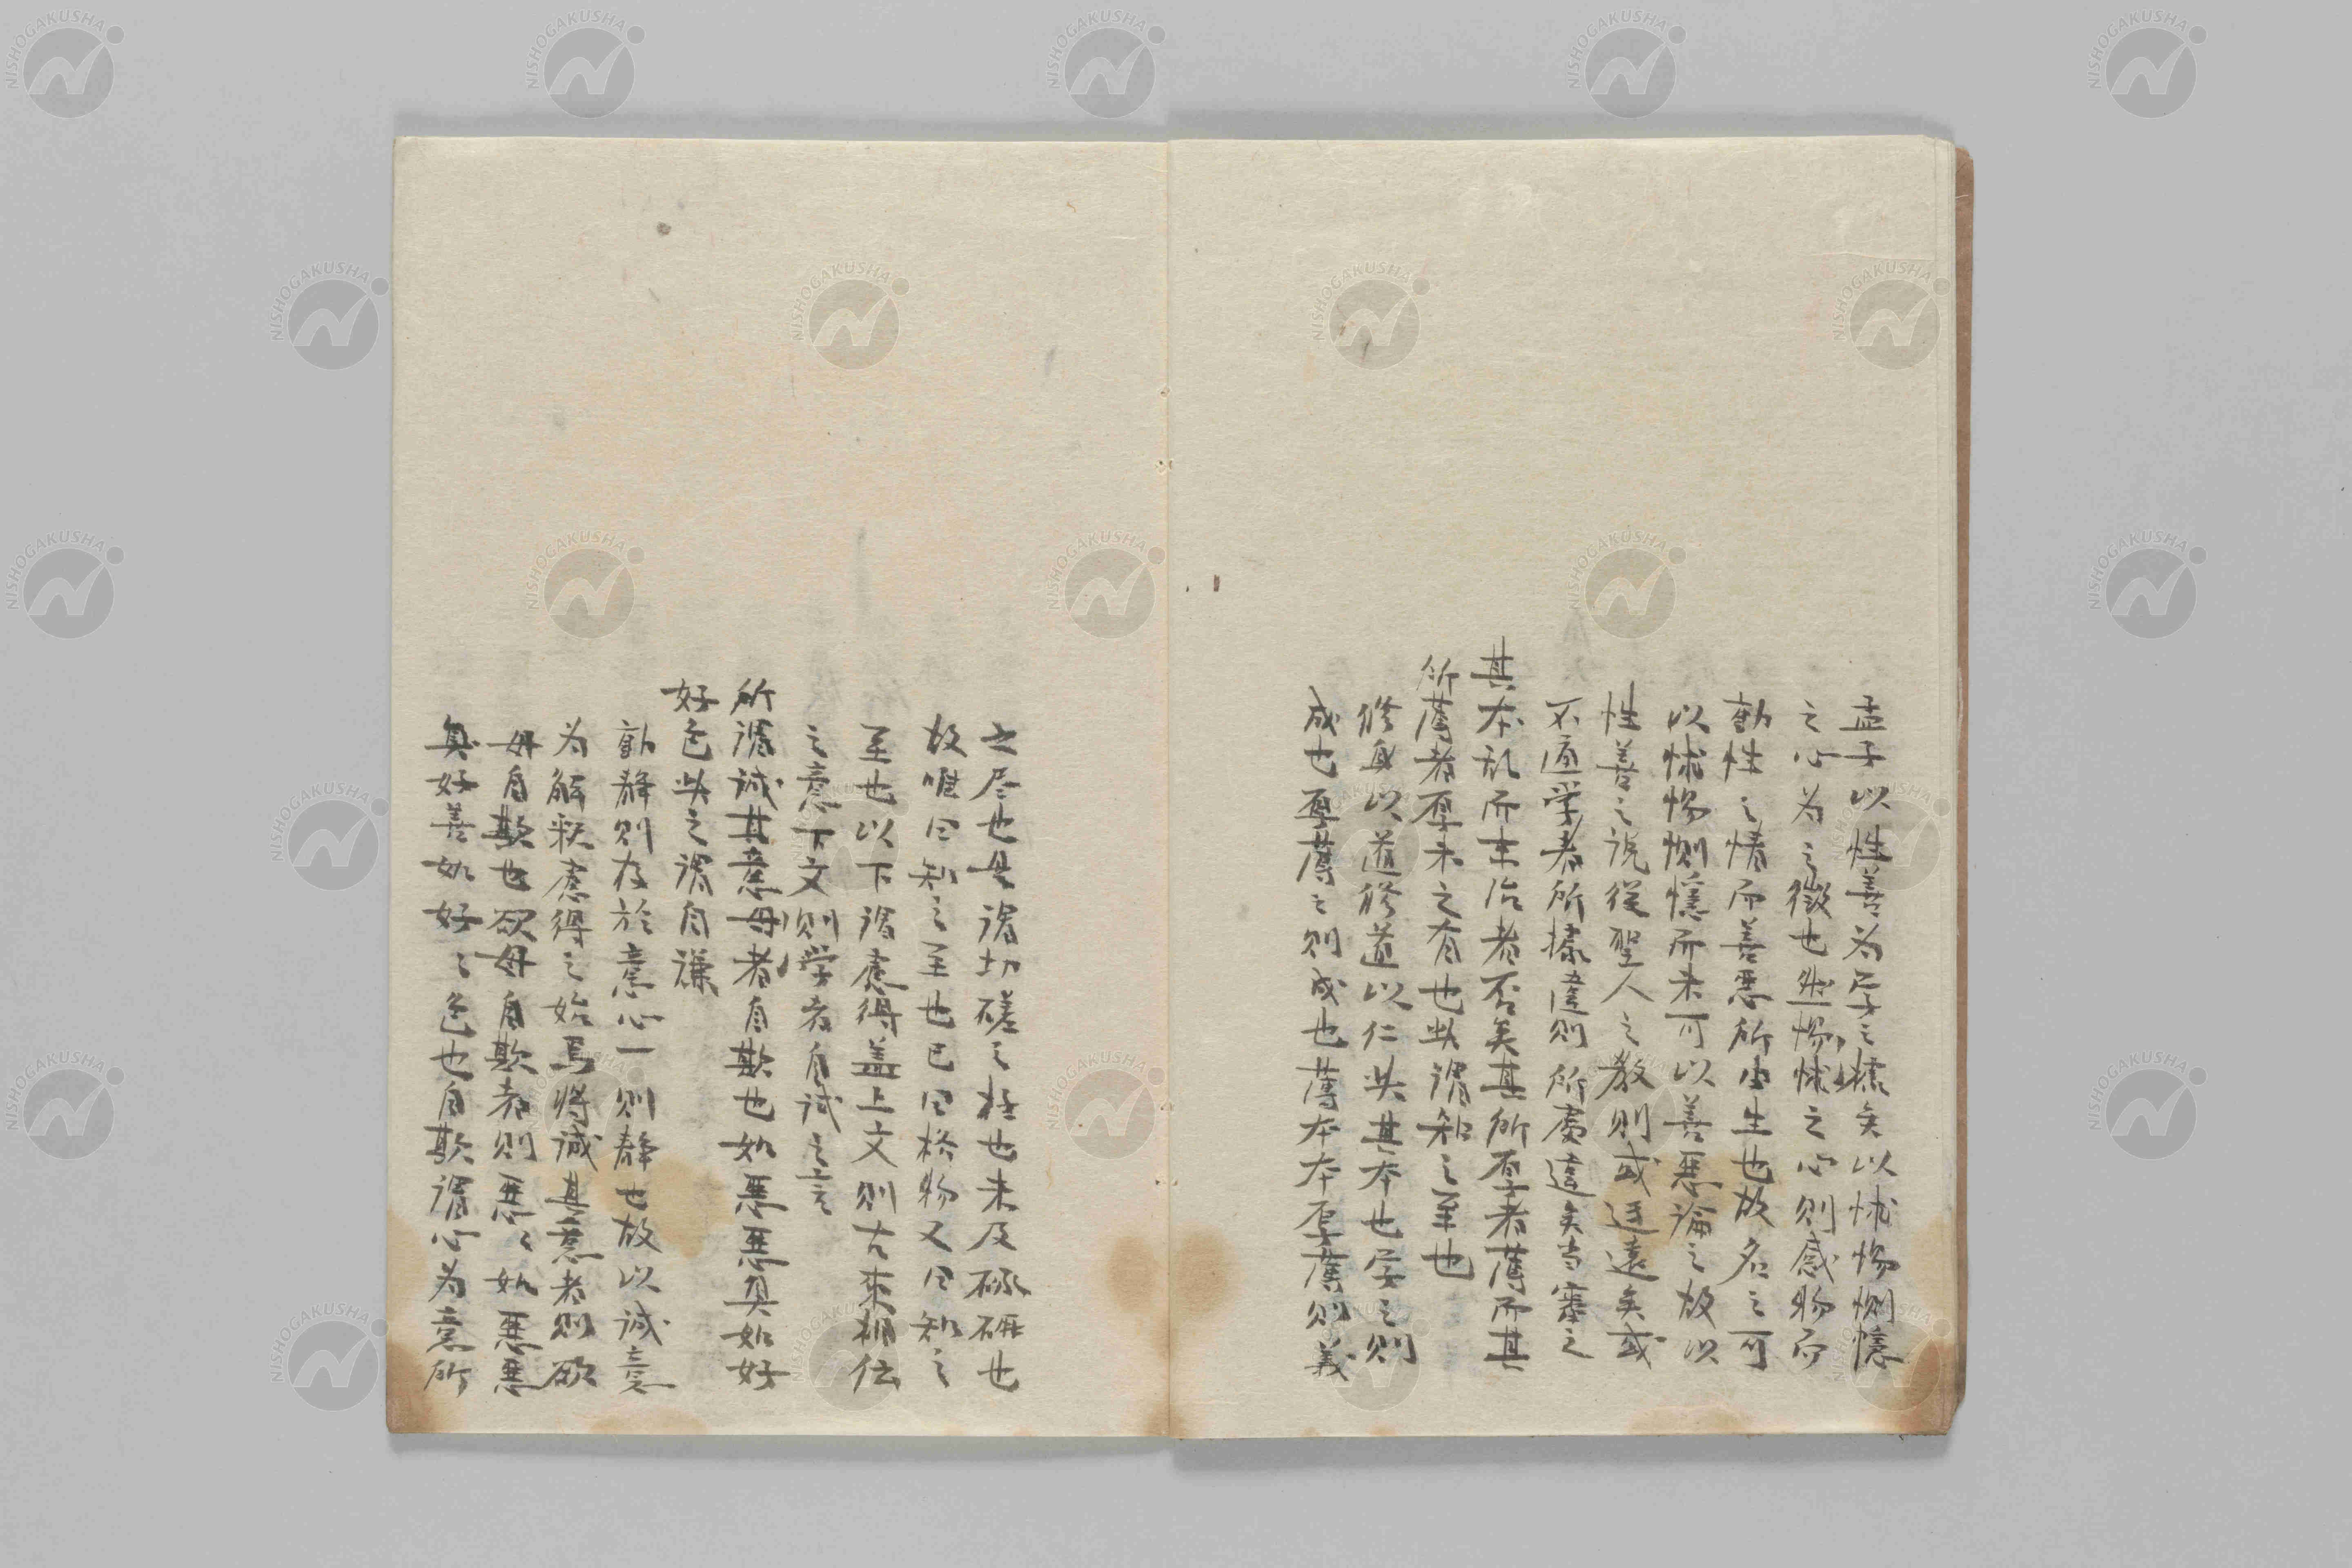 孟子以性善為学之據矣以怵惕惻憶
之心為之徵也然惕怵之心則感物而
動性之情而善悪所由生也故名之可
以怵惕惻憶而未可以善悪論之故以
性善之説従聖人之教則或迂遠矣或
不適学者所據違則所處違矣当審之
其本乱而末治者否矣其所厚者薄而其
所薄者厚未之有也此謂知之至也
修身以道修道以仁此其本也厚之則
成也厚薄之則成也薄本本厚薄則義
之尽也是謂切磋之粗也未及琢研也
故唯曰知之至也已曰格物又曰知之
至也以下謂慮得蓋上文則古来相伝
之意下文則学者自試之言
所謂誠其意毋者自欺也如悪悪臭如好
好色此之謂自謙
動静則存於意心一則静也故以誠意
為解釈慮得之始焉将誠其意者則欲
毋自欺也欲毋自欺者則悪〻如悪悪
臭好善如好〻色也自欺謂心為意所